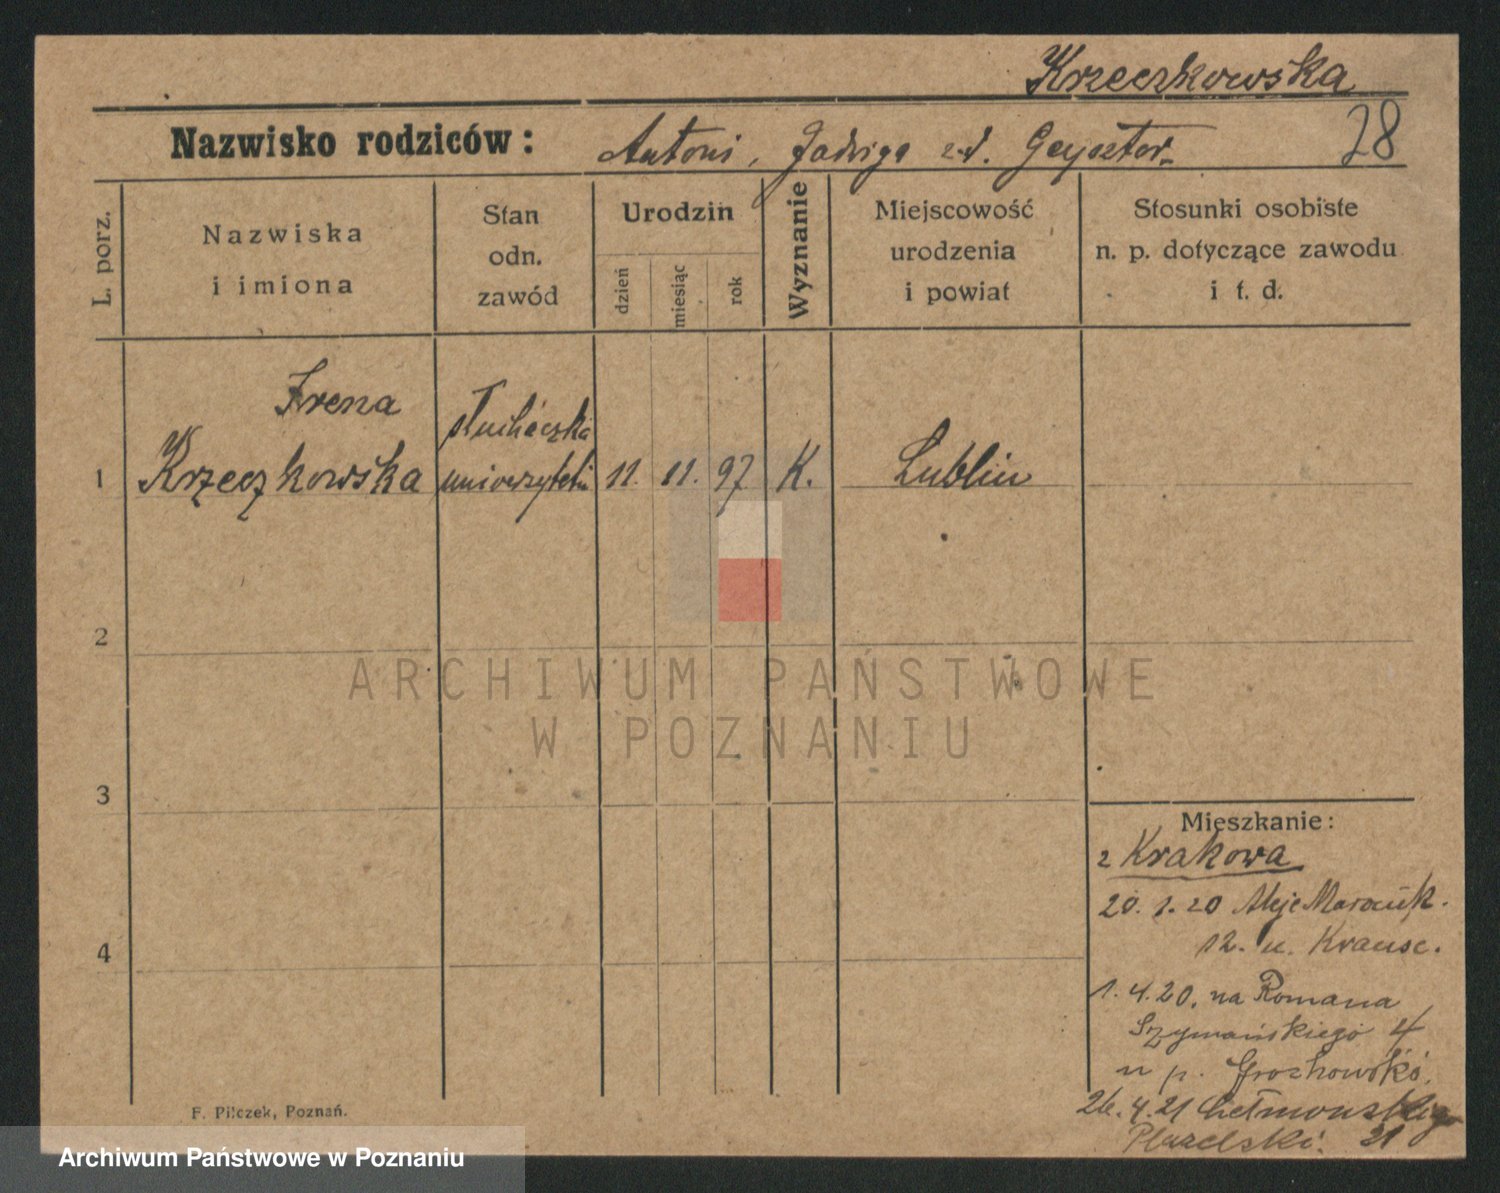 Krzeczkowska
Nazwisko rodziców: Antoni, Jadwiga z d. Geysztor. 28
L. porz.
Nazwiska
i imiona
Stan
odn.
zawód
Urodzin
dzień
miesiąc
rok
Wyznanie
Miejscowość
urodzenia
i powiat
Stosunki osobiste
n. p. dotyczące zawodu
i t. d.
Irena słuchaczka
1 Krzeczkowska uniwerzytetu 11. 11. 97 K. Lublin
2
ARCHIWUM PAŃSTWOWE
W POZNANIU
3
Mieszkanie:
z Krakowa
20. 1. 20 Aleje Marcink.
12. u. Krause.
4
1. 4. 20. na Romana
Szymańskiego 4
u p. Groskowski.
26. 4. 21
21
F. Pilczek, Poznań.
Archiwum Państwowe w Poznaniu